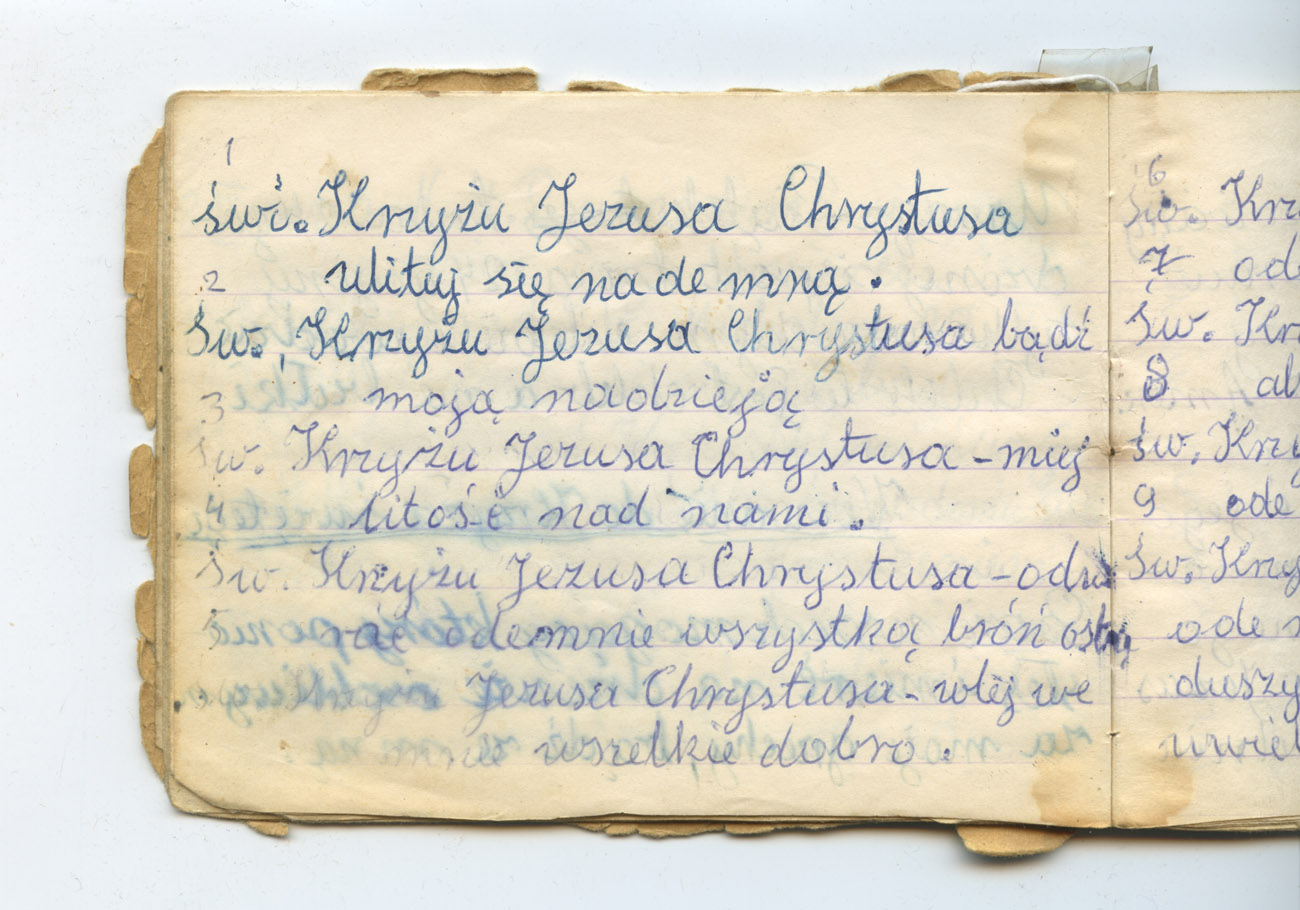 1
świ. Krzyżu Jezusa Chrystusa
2 ulituj się nademną.
Św. Krzyżu Jezusa Chrystusa bądź
3 moją nadzieją
Św. Krzyżu Jezusa Chrystusa - miej
4 litość nad nami.
Św. Krzyżu Jezusa Chrystusa - odw
5 rać odemnie wszystką broń ostrą
Jezusa Chrystusa - wlej we
mnie wszelkie dobro.
6
św. Krz
7 od
Św. Kr
8 ab
św. Krzy
9 ode
Św. Krzy
ode
duszy
uwiel